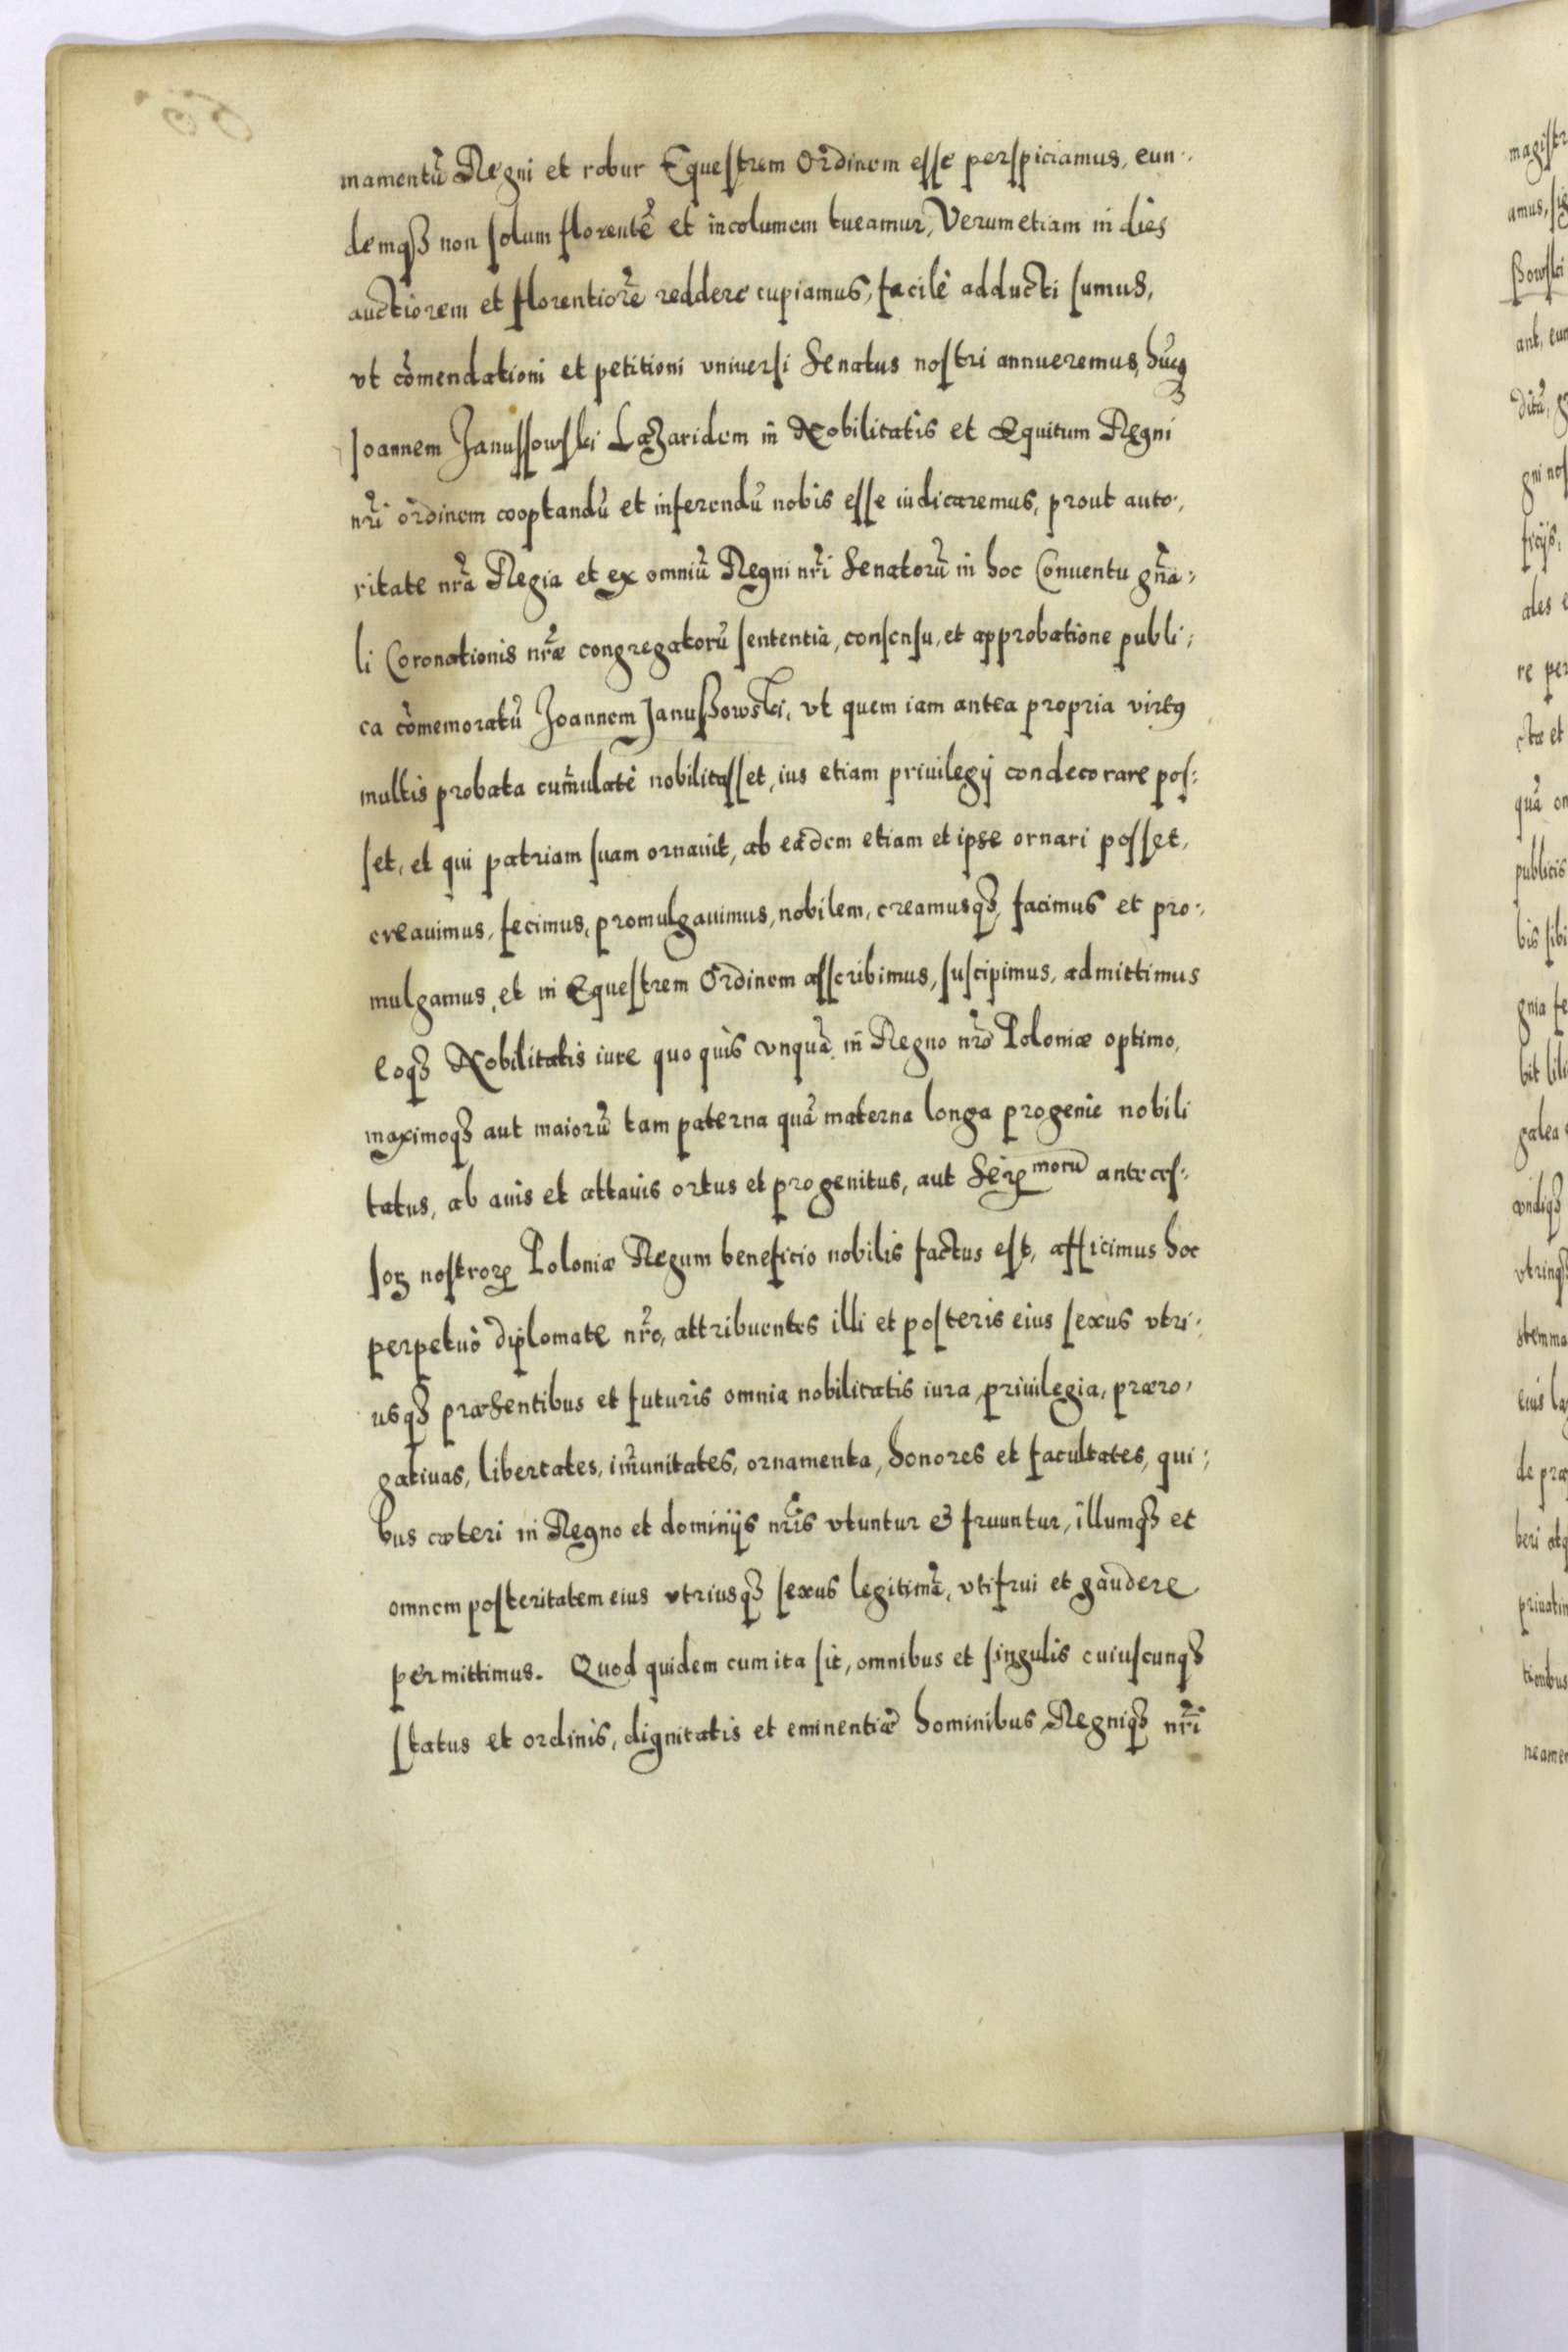 mamentũ Regni et robur Equestrem Ordinem esse perspiciamus, eun-
demqꝫ non solum florentẽ et incolumem tueamur, Verumetiam in dies
auctiorem et florentiorẽ reddere cupiamus, facilè adducti sumus,
vt cõmendationi et petitioni vniuersi Senatus nostri annueremus,
Ioannem Janussowski Lazaridem in Nobilitatis et Equitum Regni
nr̃i ordinem cooptandũ et inferendũ nobis esse iudicaremus, prout auto-
ritate nr̃a Regia et ex omniũ Regni nr̃i Senatorũ in hoc Conuentu gñra-
li Coronationis nr̃æ congregatorũ sententia, consensu, et approbatione publi-
ca cõmemoratũ Joannem Janußowski, vt quem iam antea propria virtꝰ
multis probata cum̃ulatè nobilitasset, ius etiam priuilegij condecorare pos-
set, et qui patriam suam ornauit, ab eadem etiam et ipse ornari posset,
creauimus, fecimus, promulgauimus, nobilem, creamusqꝫ, facimus et pro-
mulgamus, et in Equestrem Ordinem asscribimus, suscipimus, admittimus
eoqꝫ Nobilitatis iure quo quis vnquã in Regno nr̃o Poloniæ optimo,
maximoqꝫ aut maiorũ tam paterna quã materna longa progenie nobili
tatus, ab auis et attauis ortus et progenitus, aut Serꝫ morũ anteces-
soꝝ nostroꝝ Poloniæ Regum beneficio nobilis factus est, afficimus hoc
perpetuò diplomate nr̃o, attribuentes illi et posteris eius sexus vtri-
usqꝫ præsentibus et futuris omnia nobilitatis iura, priuilegia, præro-
gatiuas, libertates, im̃unitates, ornamenta, honores et facultates, qui-
bus cæteri in Regno et dominijs nr̃is vtuntur & fruuntur, illumqꝫ et
omnem posteritatem eius vtriusqꝫ sexus legitimã, vtifrui et gaudere
permittimus. Quod quidem cum ita sit, omnibus et singulis cuiuscunqꝫ
status et ordinis, dignitatis et eminentiæ hominibus Regniqꝫ nr̃i